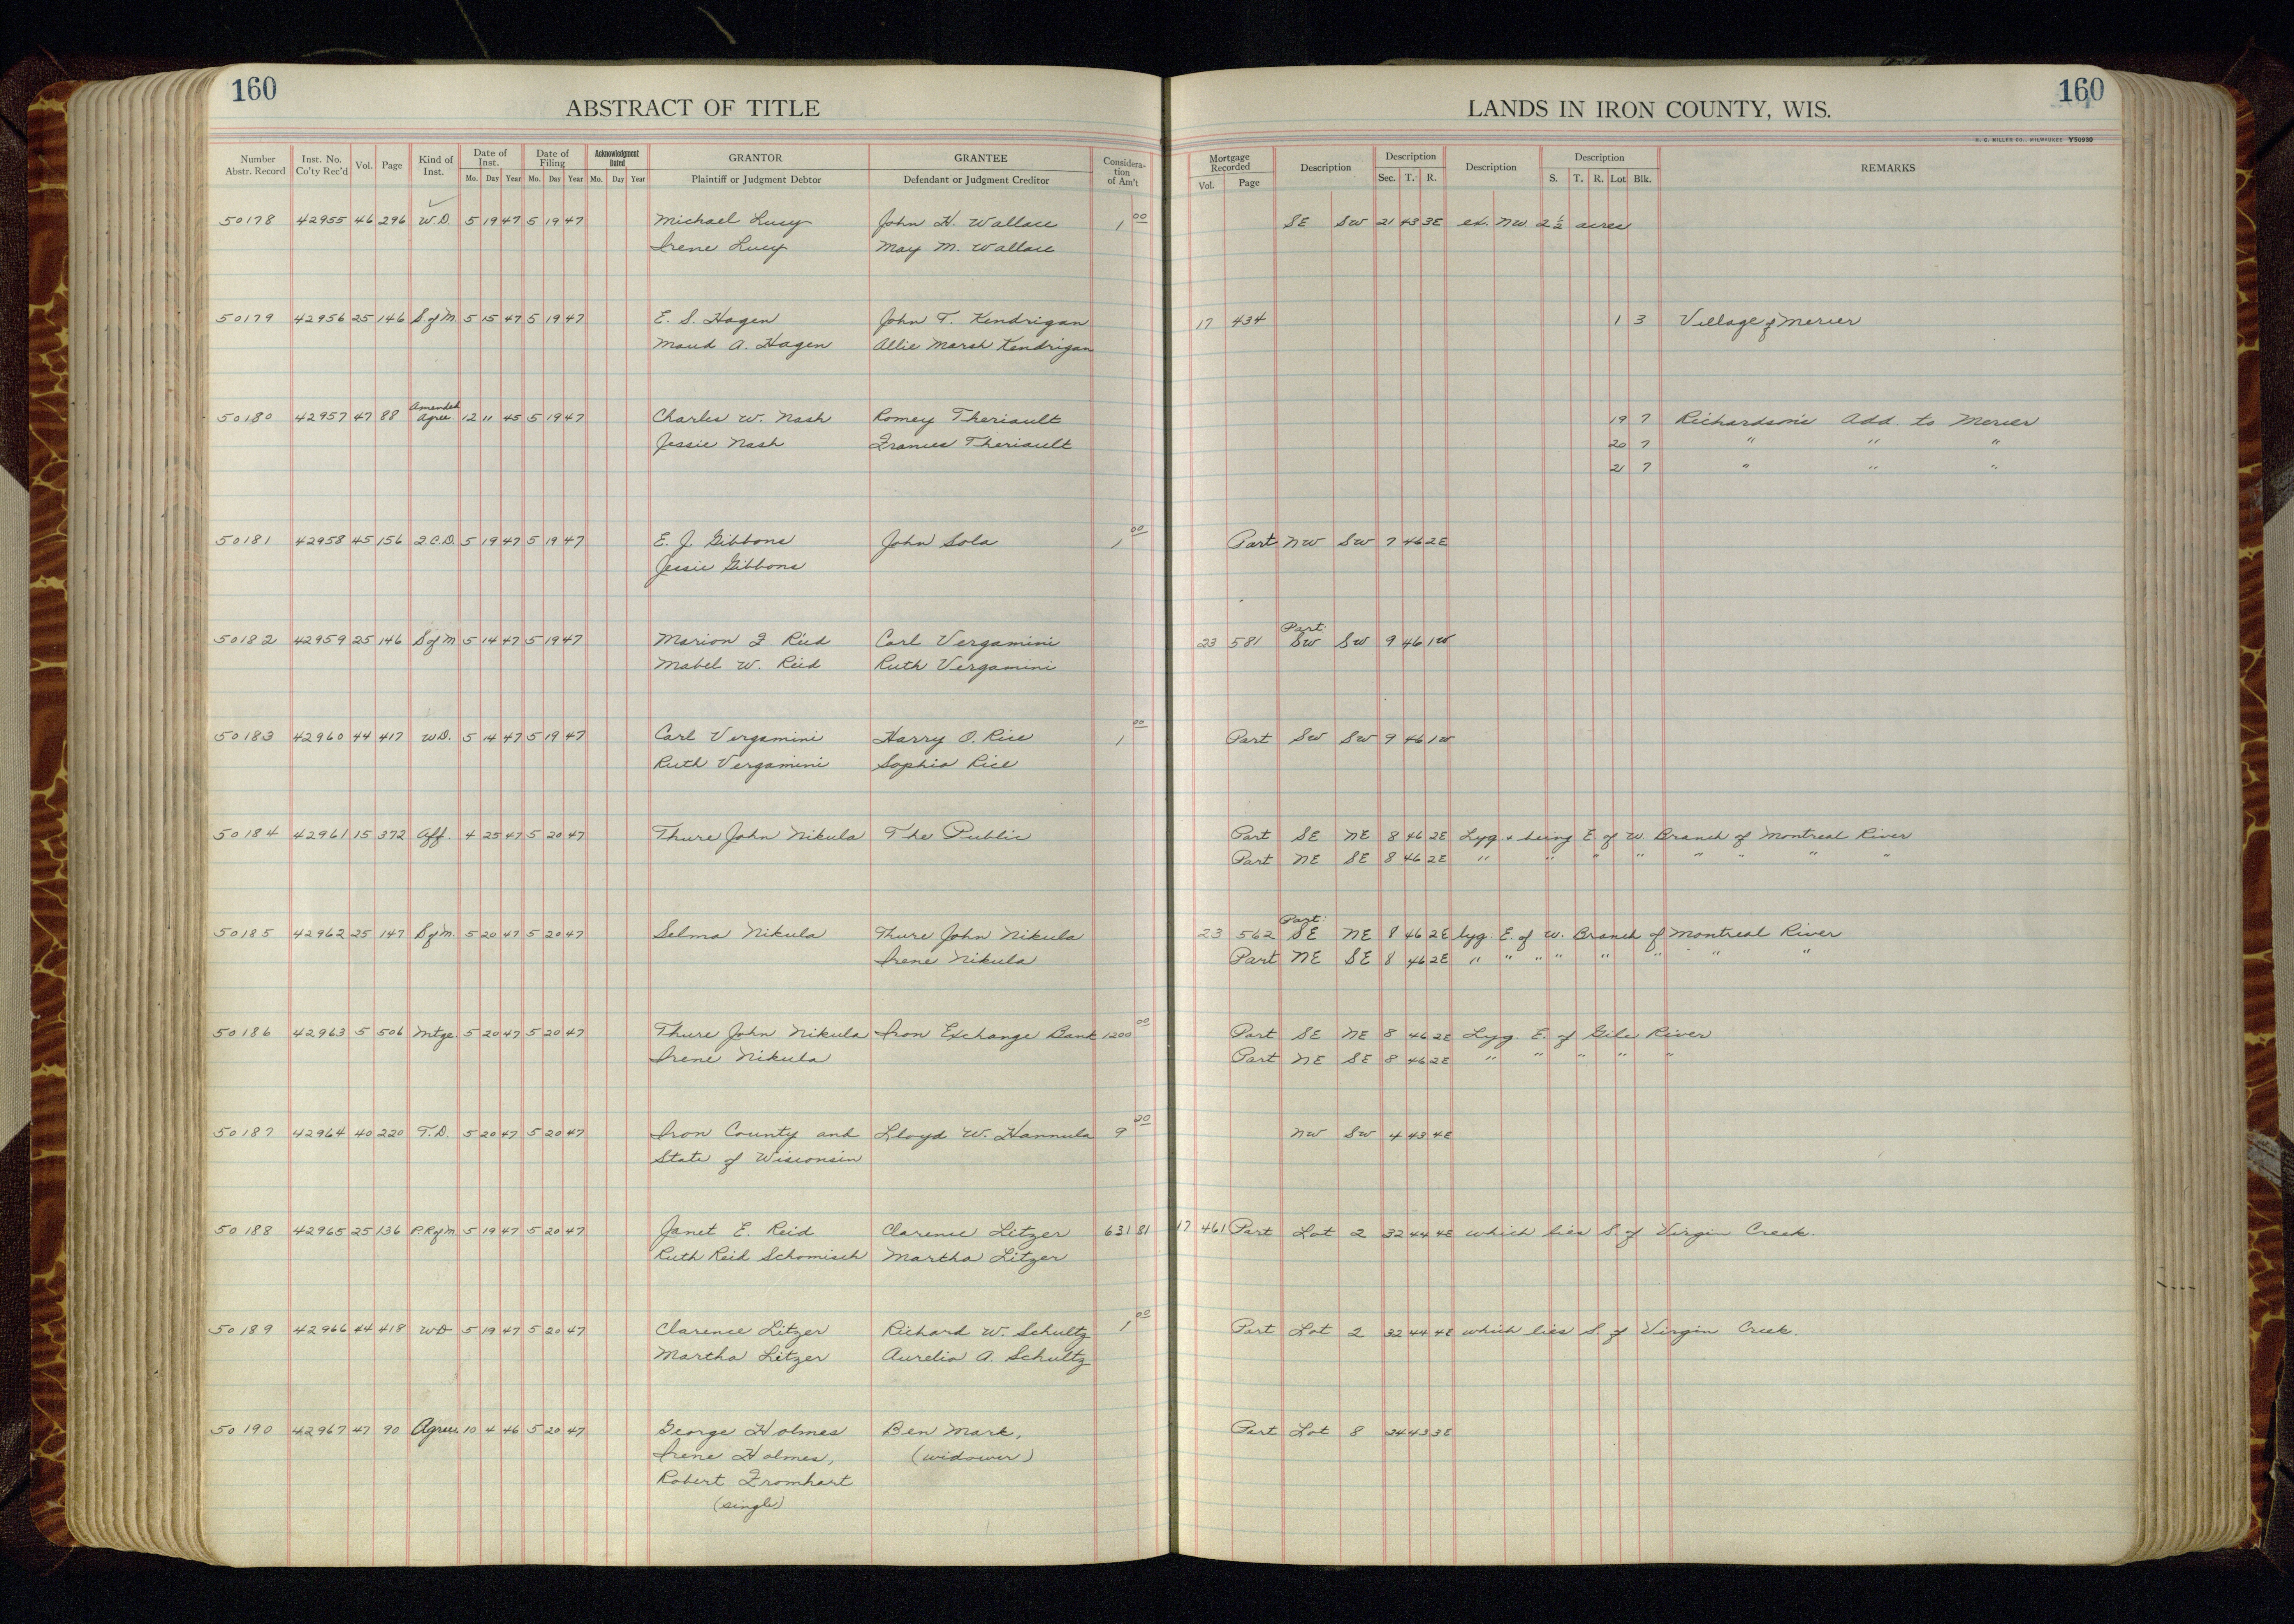 160
160
ABSTRACT OF TITLE
LANDS IN IRON COUNTY, WIS.
H. C. MILLER CO., MILWAUKEE Y50930
Number Abstr. Record Inst. No. Co'ty Rec'd Vol. Page Kind of Inst. Date of Inst. Mo. Day Year Date of Filing Mo. Day Year Acknowledgment Dated Mo. Day Year GRANTOR Plaintiff or Judgment Debtor GRANTEE Defendant or Judgment Creditor Consideration of Am't Mortgage Recorded Vol. Page Description Description Sec. T. R. Description Description S. T. R. Lot Blk. REMARKS
50178 42955 46 296 W.D. 5 19 47 5 19 47 Michael Lucy John H. Wallace 1 00 SE SW 21 43 3E ex. NW 2 1/2 acres
Irene Lucy May M. Wallace
50179 42956 25 146 S. of M. 5 15 47 5 19 47 E. S. Hagen John T. Kendrigan 17 434 1 3 Village of Mercer
Maud A. Hagen Allie Marsh Kendrigan
50180 42957 47 88 Amended Agree. 12 11 45 5 19 47 Charles W. Nash Romey Theriault 19 7 Richardson's Add. to Mercer
Jessie Nash Frances Theriault 20 7 " " "
21 7 " " "
50181 42958 45 156 Q.C.D. 5 19 47 5 19 47 E. J. Gibbons John Sola 1 00 Part NW SW 7 46 2E
Jessie Gibbons
50182 42959 25 146 S of M 5 14 47 5 19 47 Marion F. Reid Carl Vergamini 23 581 Part: SW SW 9 46 1W
Mabel W. Reid Ruth Vergamini
50183 42960 44 417 W.D. 5 14 47 5 19 47 Carl Vergamini Harry O. Rice 1 00 Part SW SW 9 46 1W
Ruth Vergamini Sophia Rice
50184 42961 15 372 Aff. 4 25 47 5 20 47 Thure John Nikula The Public Part SE NE 8 46 2E Lyg. & being E. of W. Branch of Montreal River
Part NE SE 8 46 2E " " " " " " " "
50185 42962 25 147 S of M. 5 20 47 5 20 47 Selma Nikula Thure John Nikula 23 562 Part: SE NE 8 46 2E lyg. E. of W. Branch of Montreal River
Irene Nikula Part NE SE 8 46 2E " " " " " " " "
50186 42963 5 506 Mtge. 5 20 47 5 20 47 Thure John Nikula Iron Exchange Bank 1200 00 Part SE NE 8 46 2E Lyg. E. of Gile River
Irene Nikula Part NE SE 8 46 2E " " " " "
50187 42964 40 220 T.D. 5 20 47 5 20 47 Iron County and Lloyd W. Hannula 9 20 NW SW 4 43 4E
State of Wisconsin
50188 42965 25 136 P.R of M. 5 19 47 5 20 47 Janet E. Reid Clarence Litzer 631 81 17 461 Part Lot 2 32 44 4E which lies S. of Virgin Creek.
Ruth Reid Schomisch Martha Litzer
50189 42966 44 418 WD 5 19 47 5 20 47 Clarence Litzer Richard W. Schultz 1 00 Part Lot 2 32 44 4E which lies S. of Virgin Creek.
Martha Litzer Aurelia A. Schultz
50190 42967 47 90 Agree. 10 4 46 5 20 47 George Holmes Ben Mark, Part Lot 8 24 43 3E
Irene Holmes, (widower)
Robert Fromhart
(single)